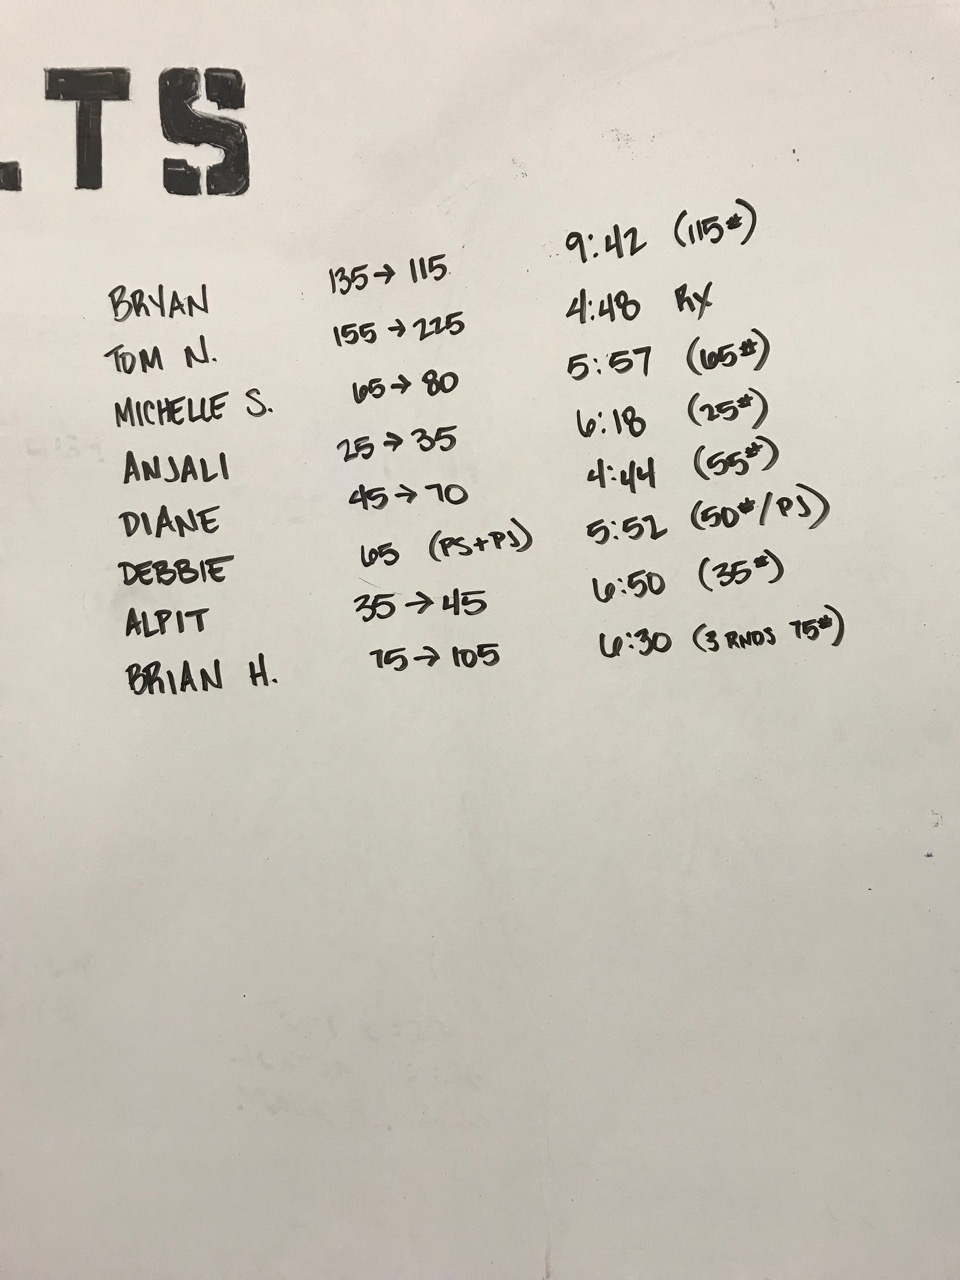 LTS
BRYAN 135→115 9:42 (115#)
TOM N. 155→225 4:48 RX
MICHELLE S. 65→80 5:57 (65#)
ANJALI 25→35 6:18 (25#)
DIANE 45→70 4:44 (55#)
DEBBIE 65 (PS+PJ) 5:52 (50#/PJ)
ALPIT 35→45 6:50 (35#)
BRIAN H. 75→105 6:30 (3 RNDS 75#)